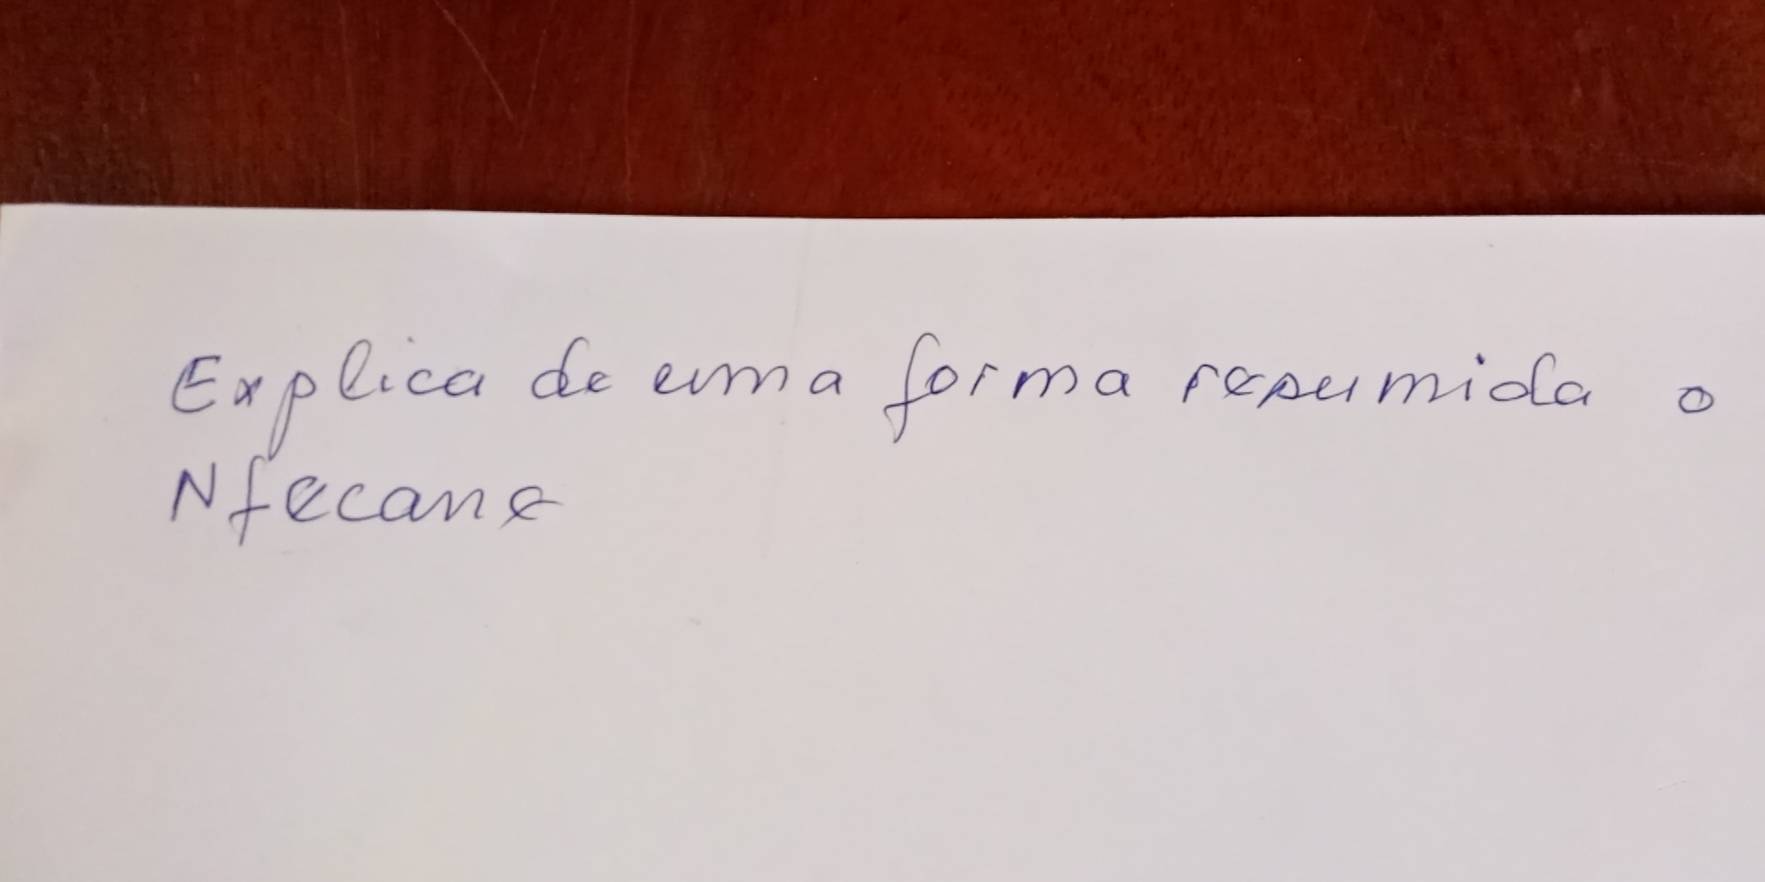 Explica de uma forma resumida o
Nfecane